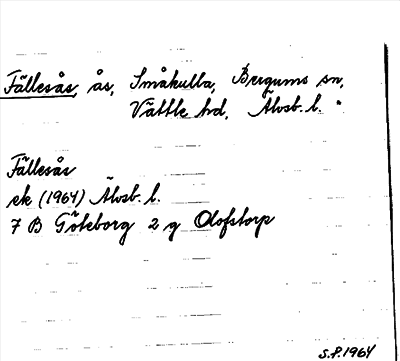 Fällesås, ås, Småkulla, Bergums sn,
Vättle hd, Älvsb. l.
Fällesås
ek (1964) Älvsb. l.
7 B Göteborg 2 g Olofstorp
S.P. 1964